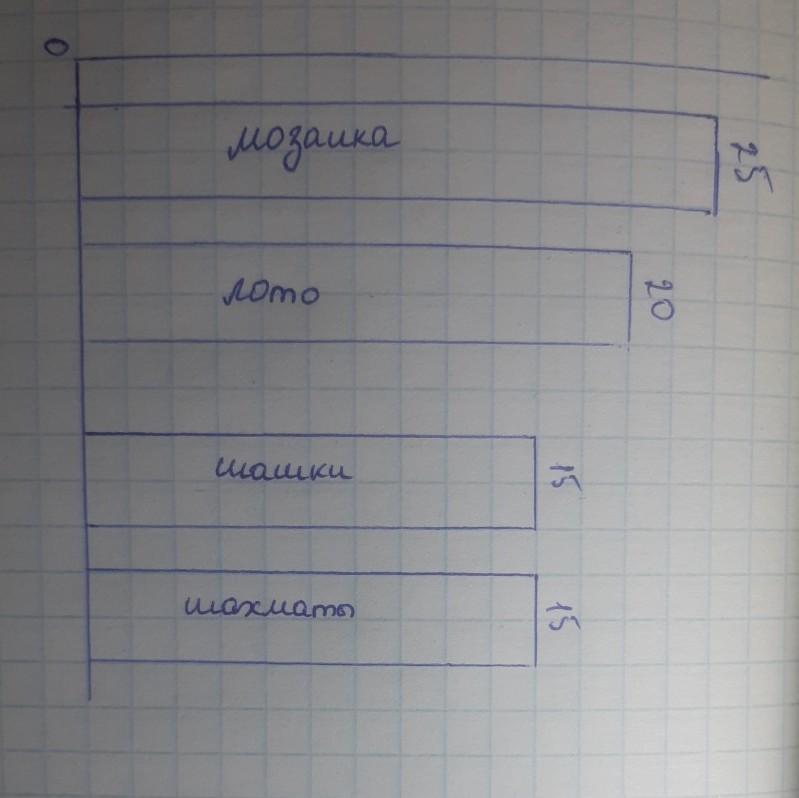 0
мозаика
25
лото
20
шашки
15
шахматы
15